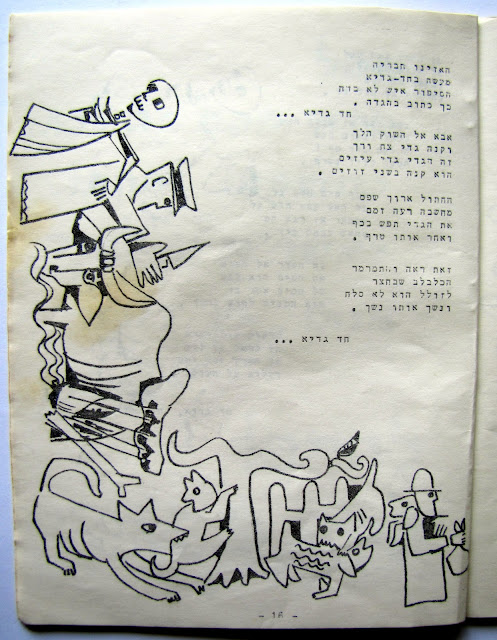 האזינו חבריה
מעשה בחד-גדיא
הסיפור איש לא בדה
כך כתוב בהגדה .
חד גדיא ...
אבא אל השוק הלך
וקנה גדי צח ורך
זה הגדי גדי עיזים
הוא קנה בשני זוזים .
החתול ארוך שפם
מחשבה רעה זמם
את הגדי תפש בכף
ואחר אותו טרף .
זאת ראה והתמרמר
הכלבלב שבחצר
לזולל הוא לא סלח
ונשך אותו נשך .
חד גדיא ...
- 16 -